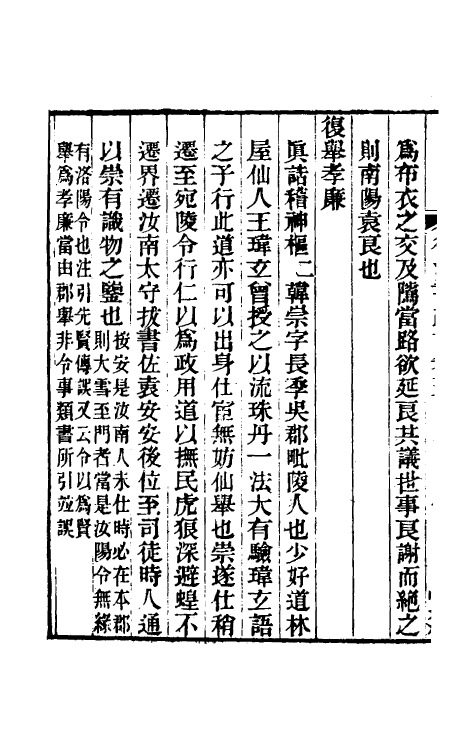 爲布衣之交及隲當路欲延良共議世事良謝而絕之
則南陽袁良也
復舉孝廉
眞誥稽神樞二韓崇字長季吳郡毗陵人也少好道林
屋仙人王瑋玄曾授之以流珠丹一法大有驗瑋玄語
之子行此道亦可以出身仕宦無妨仙舉也崇遂仕稍
遷至宛陵令行仁以爲政用道以撫民虎狼深避蝗不
遷界遷汝南太守拔書佐袁安安後位至司徒時人通
以崇有識物之鑒也
按安是汝南人未仕時必在本郡
則大雪至門者當是汝陽令無緣
有洛陽令也注引先賢傳誤又云令以爲賢
舉爲孝廉當由郡舉非令事類書所引竝誤